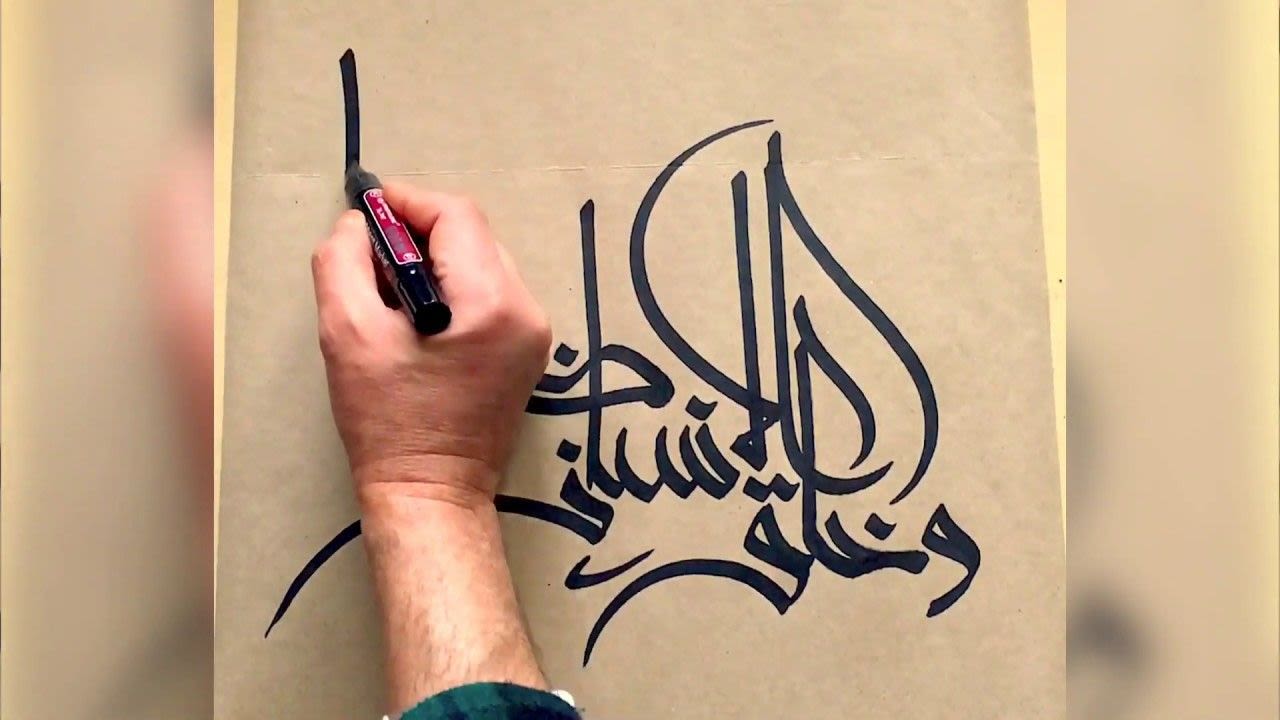 وخلق الانسان